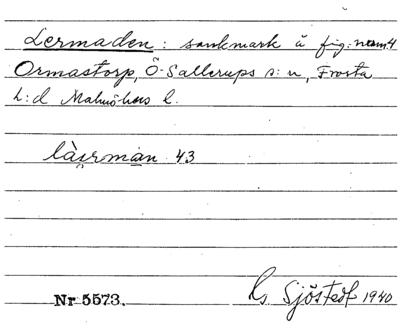 Lermaden: sankmark å fig: num. 4
Ormastorp, Ö. Sallerups s:n, Frosta
h:d Malmöhus l.
làe̯rmán 43
Nr 5573. Gs Sjöstedt 1940